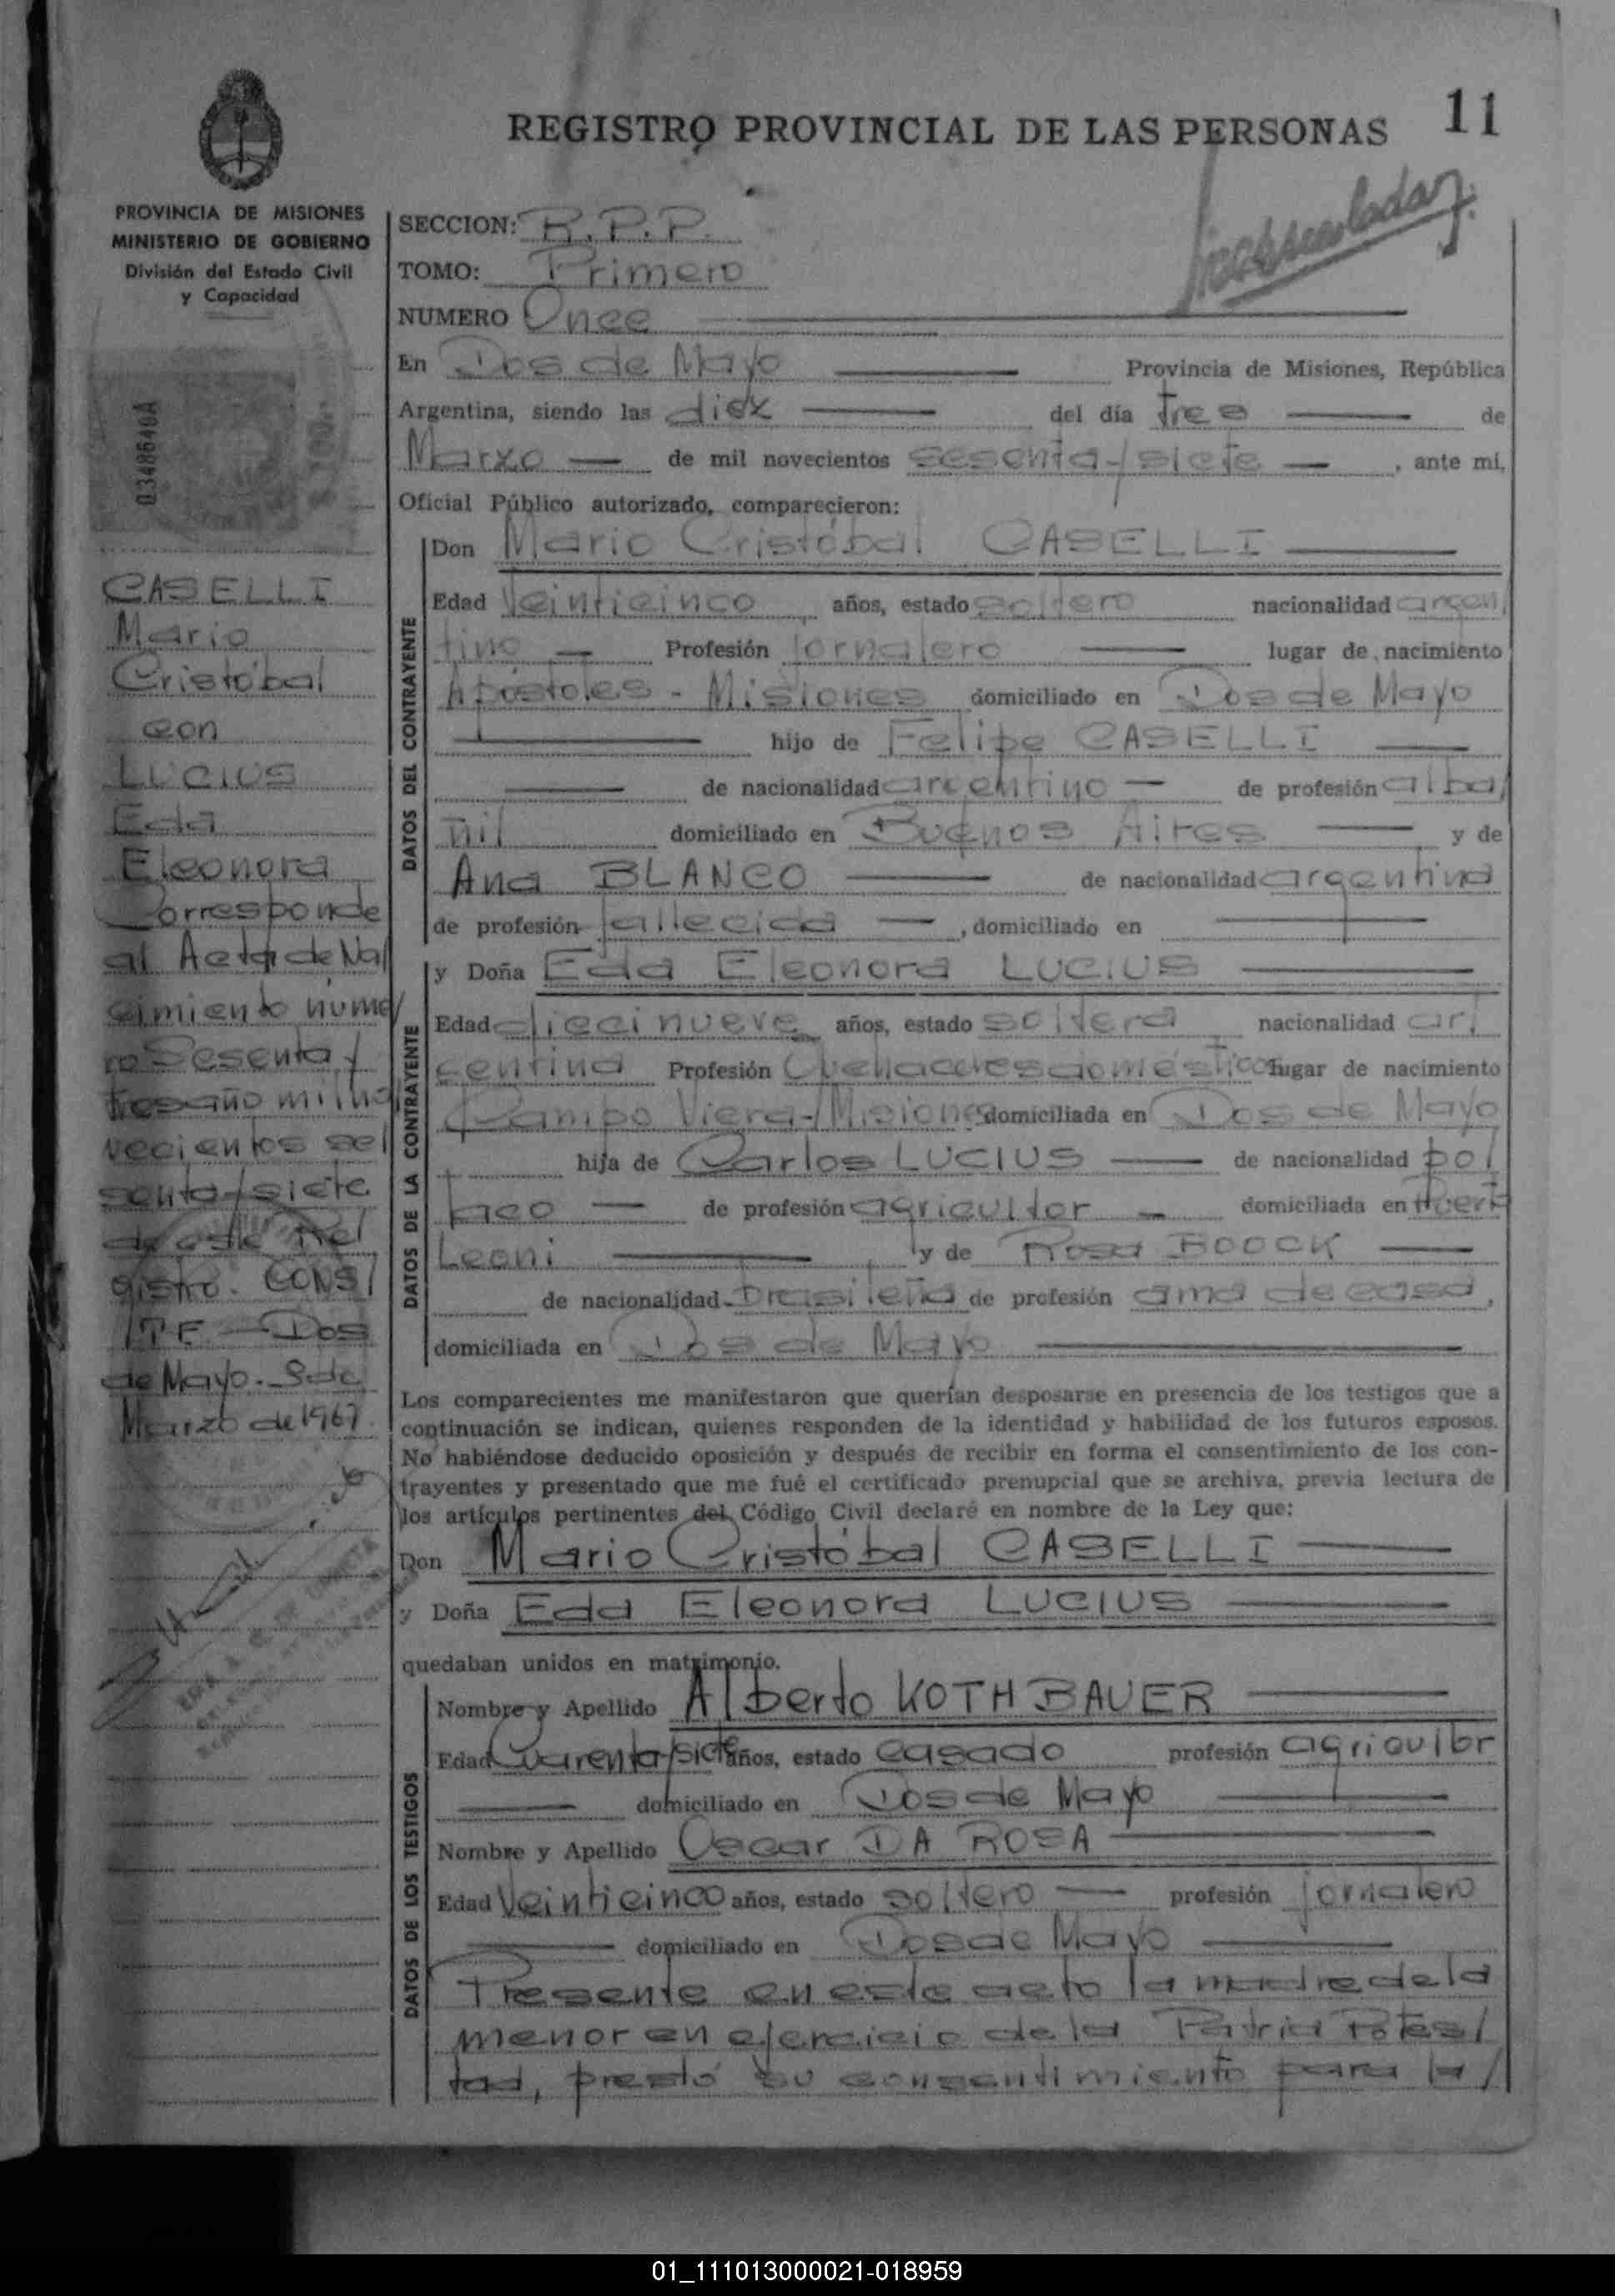 REGISTRO PROVINCIAL DE LAS PERSONAS 11
PROVINCIA DE MISIONES
MINISTERIO DE GOBIERNO
División del Estado Civil
y Capacidad
0348640A
CASELLI
Mario
Cristóbal
con
LUCIUS
Eda
Eleonora
Corresponde
al Acta de Na/
cimiento núme/
ro Sesenta y
tres año mil no
vecientos se/
senta y siete
de este Re/
gistro. CONS/
TE.- Dos
de Mayo.- 3 de
Marzo de 1967.
SECCION: R.P.P.
TOMO: Primero
NUMERO Once
En Dos de Mayo Provincia de Misiones, República
Argentina, siendo las diez del día tres de
Marzo de mil novecientos sesenta y siete , ante mí,
Oficial Público autorizado, comparecieron:
DATOS DEL CONTRAYENTE
Don Mario Cristóbal CASELLI
Edad Veinticinco años, estado soltero nacionalidad argen/
tino Profesión Jornalero lugar de nacimiento
Apóstoles - Misiones domiciliado en Dos de Mayo
hijo de Felipe CASELLI
de nacionalidad argentino de profesión alba/
ñil domiciliado en Buenos Aires y de
Ana BLANCO de nacionalidad argentina
de profesión fallecida , domiciliado en
DATOS DE LA CONTRAYENTE
y Doña Eda Eleonora LUCIUS
Edad diecinueve años, estado soltera nacionalidad ar/
gentina Profesión Quehaceres domésticos lugar de nacimiento
Campo Viera-/Misiones domiciliada en Dos de Mayo
hija de Carlos LUCIUS de nacionalidad pol/
aco de profesión agricultor domiciliada en Puerto
Leoni y de Rosa BOOCK
de nacionalidad brasileña de profesión ama de casa,
domiciliada en Dos de Mayo
Los comparecientes me manifestaron que querían desposarse en presencia de los testigos que a
continuación se indican, quienes responden de la identidad y habilidad de los futuros esposos.
No habiéndose deducido oposición y después de recibir en forma el consentimiento de los con-
trayentes y presentado que me fué el certificado prenupcial que se archiva, previa lectura de
los artículos pertinentes del Código Civil declaré en nombre de la Ley que:
Don Mario Cristóbal CASELLI
y Doña Eda Eleonora LUCIUS
quedaban unidos en matrimonio.
DATOS DE LOS TESTIGOS
Nombre y Apellido Alberto KOTHBAUER
Edad Cuarenta y siete años, estado casado profesión agricultor
domiciliado en Dos de Mayo
Nombre y Apellido Oscar DA ROSA
Edad Veinticinco años, estado soltero profesión jornalero
domiciliado en Dos de Mayo
Presente en este acto la madre de la
menor en ejercicio de la Patria Potes/
tad, prestó su consentimiento para la/
01_111013000021-018959